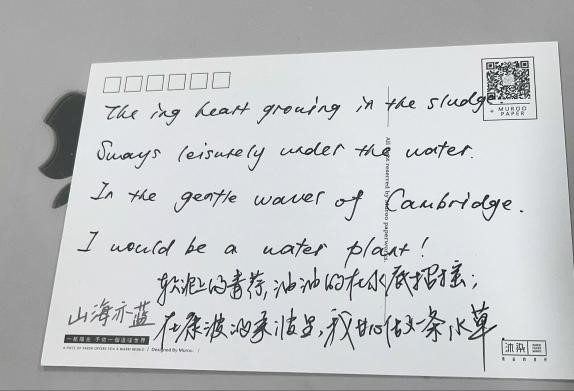 The ing heart growing in the sludge
Sways leisurely under the water.
In the gentle waves of Cambridge.
I would be a water plant!
软泥上的青荇,油油的在水底招摇;
在康河的柔波里,我甘心做一条水草
山海亦蓝
MUROO
PAPER
All right reserved by muroo paperworks.
一紙陽光 予你一個溫暖世界
A PIECE OF PAPER OFFERS YOU A WARM WORLD / Designed By Muroo. /
沐染
MUROO
PAPER